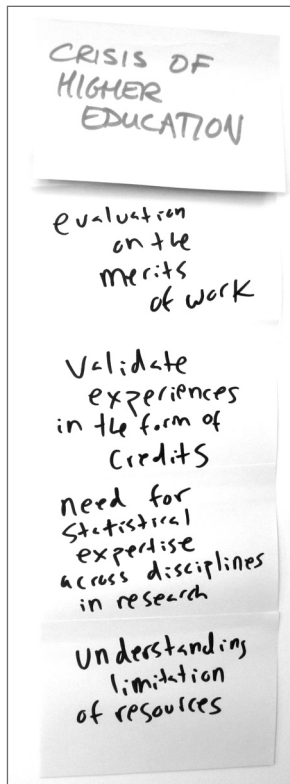 CRISIS OF
HIGHER
EDUCATION
evaluation
on the
merits
of work
Validate
experiences
in the form of
Credits
need for
statistical
expertise
across disciplines
in research
understanding
limitation
of resources